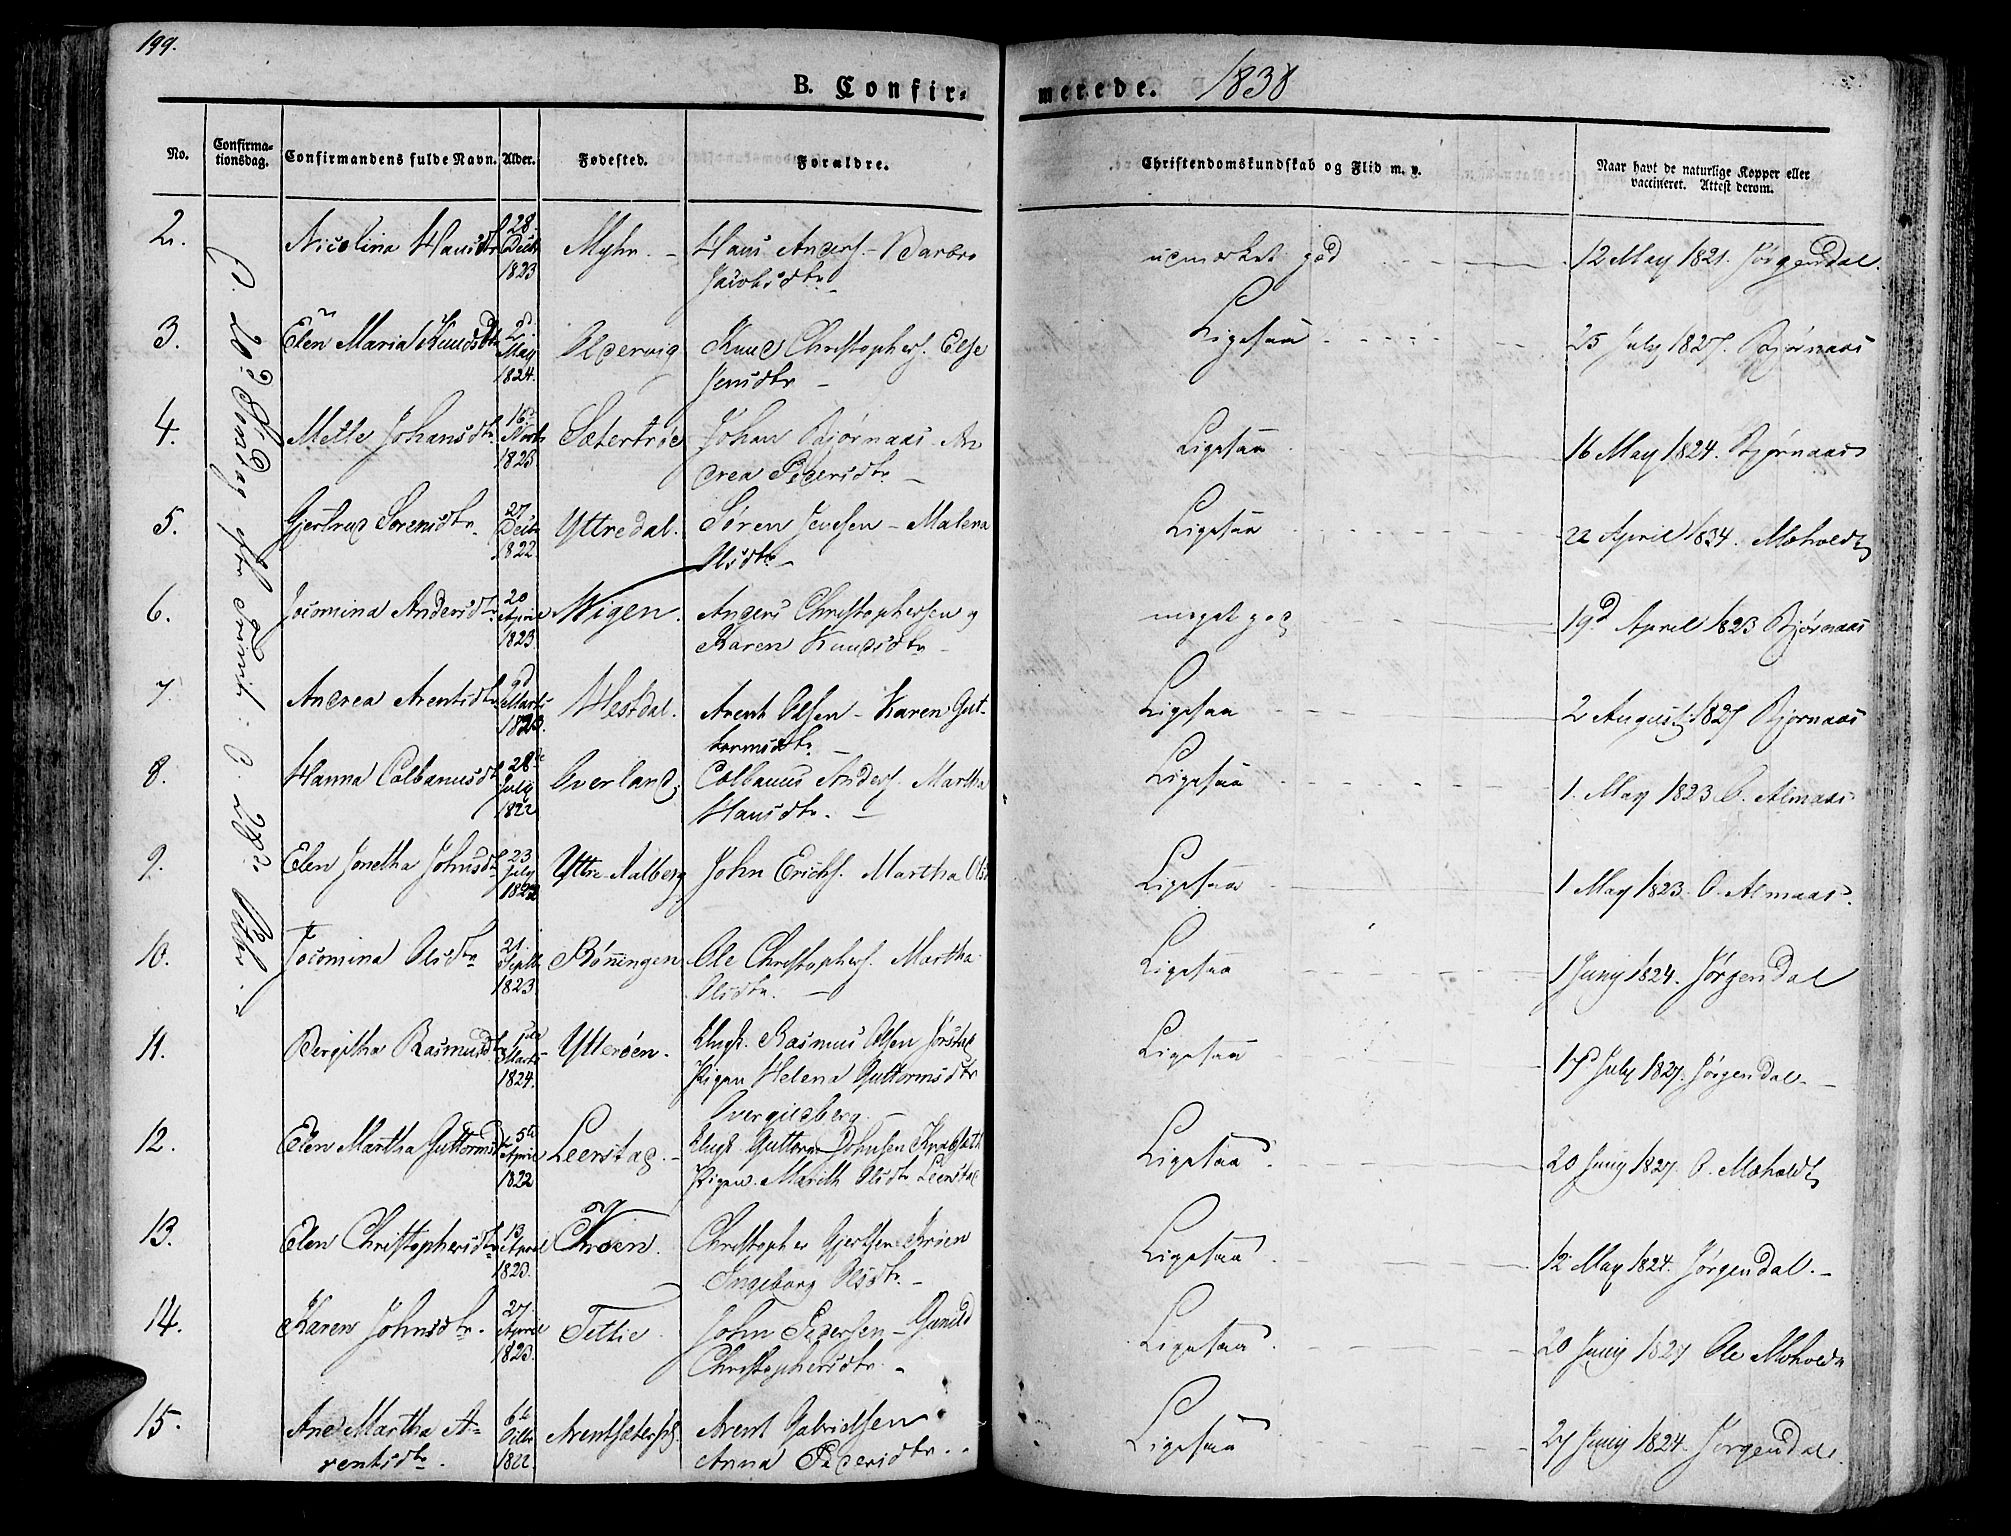 199.
B. Confir-
merede. 1838
No.
Confirma-
tionsdag.
Confirmandens fulde Navn.
Alder.
Fødested.
Forældre.
Christendomskundskab og Flid m. v.
Naar havt de naturlige Kopper eller
vaccineret. Attest derom.
2. Nicolina Hansdtr 28. Decbr 1823 Myhr. Hans Anders. - Barbro
Jacobsdtr udmærket god 12 May 1821. Jørgendal.
3. Elen Maria Knudsdtr 2d May 1824. Oldervig Knud Christophers. Else
Jensdtr Ligesaa 25 July 1827. Bjørnaas
4. Mette Johansdtr 16d Novbr 1823 Sætertrøe Johan Bjørnaas. An
drea Pedersdtr Ligesaa 16 May 1824. Bjørnaas
5. Gjertrud Sørensdtr. 27 Decbr 1822. Yttredal. Søren Jensen - Malena
Olsdtr Ligesaa 22 April 1834. Moholdt
6. Jocomina Andersdtr. 20 April 1823. Wigen. Anders Christophersen og
Karen Knudsdtr meget god 19d April 1823 Bjørnaas
7. Andrea Arentsdtr. 9d Marts 1823. Hestdal. Arent Olsen - Karen Gut-
tormsdtr Ligesaa 2 August 1827 Bjornaas
8. Hanna Colbanusdtr 28de July 1822 Overland, Colbanus Anders. Martha
Hansdtr. Ligesaa 1. May 1823 O. Almaas.
9. Elen Jonetha Johnsdtr 23 July 1822 Yttre-Aalberg John Erichs. Martha Ols Ligesaa 1 May 1823. O. Almaas.
10. Jocomina Olsdtr 21. Septbr 1823. Rønningen Ole Christophers. Martha
Olsdtr. Ligesaa 1 Juny 1824. Jørgendal
11. Bergitha Rasmusdtr 1de Marts 1824. Ytterøen. Ungk. Rasmus Olsen Jørstad
Pigen Helena Guttormsdtr
Ligesaa 17d July 1827. Jørgendal.
12. Elen Martha Guttormsd 5te April 1822 Leerstad. Ungk. Guttorm Johnsen
Pigen. Mareth Olsdtr Leerstad Ligesaa 20 Juny 1827. O. Moholdt
13. Elen Christophersdtr 13 April 1823. Christopher Gjertsen
Ingeborg Olsdtr. Ligesaa 12 May 1824. Jørgendal.
14. Karen Johnsdtr. 27. April 1823. Tettlie. John Pedersen - Gunild
Christophersdtr. Ligesaa 20 Juny 1827 Ole Moholdt
15. Ane Martha A-
rentsdtr. 6te 1822. Arent Gabrielsen
Anna Pedersdtr. Ligesaa 27 Juny 1824. Jørgendal.